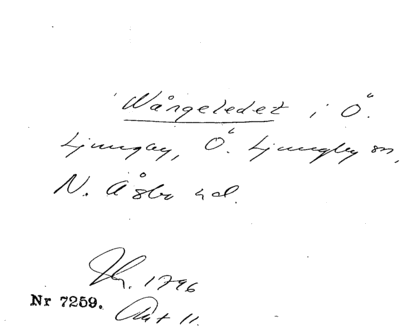 Wångeledet i Ö.
Ljungby, Ö. Ljungby sn,
N. Åsbo hd.
1796
Nr 7259.
Akt 11.